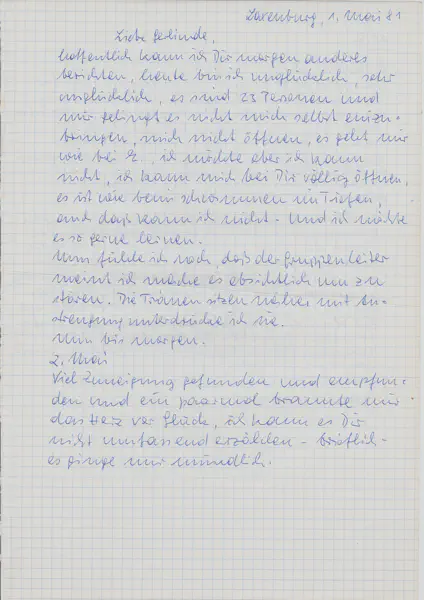 Laxenburg, 1. Mai 81
Liebe Gerlinde,
hoffentlich kann ich Dir morgen anderes
berichten, heute bin ich unglücklich, sehr
unglücklich, es sind 23 Personen und
mir gelingt es nicht mich selbst einzu-
bringen, mich nicht öffnen, es geht mir
wie bei ich möchte aber ich kann
nicht, ich kann mich bei Dir völlig öffnen,
es ist wie beim schwimmen im Tiefen,
und das kann ich nicht - Und ich möchte
es so gerne lernen.
Nun fühle ich noch, daß der Gruppenleiter
meint ich mache es absichtlich um zu
stören. Die Tränen sitzen näher mit An-
strengung unterdrücke ich sie.
Nun bis morgen.
2. Mai
Viel Zuneigung gefunden und empfun-
den und ein paarmal brannte mir
das Herz vor Glück, ich kann es Dir
nicht umfassend erzählen - brieflich -
es ginge nur mündlich.